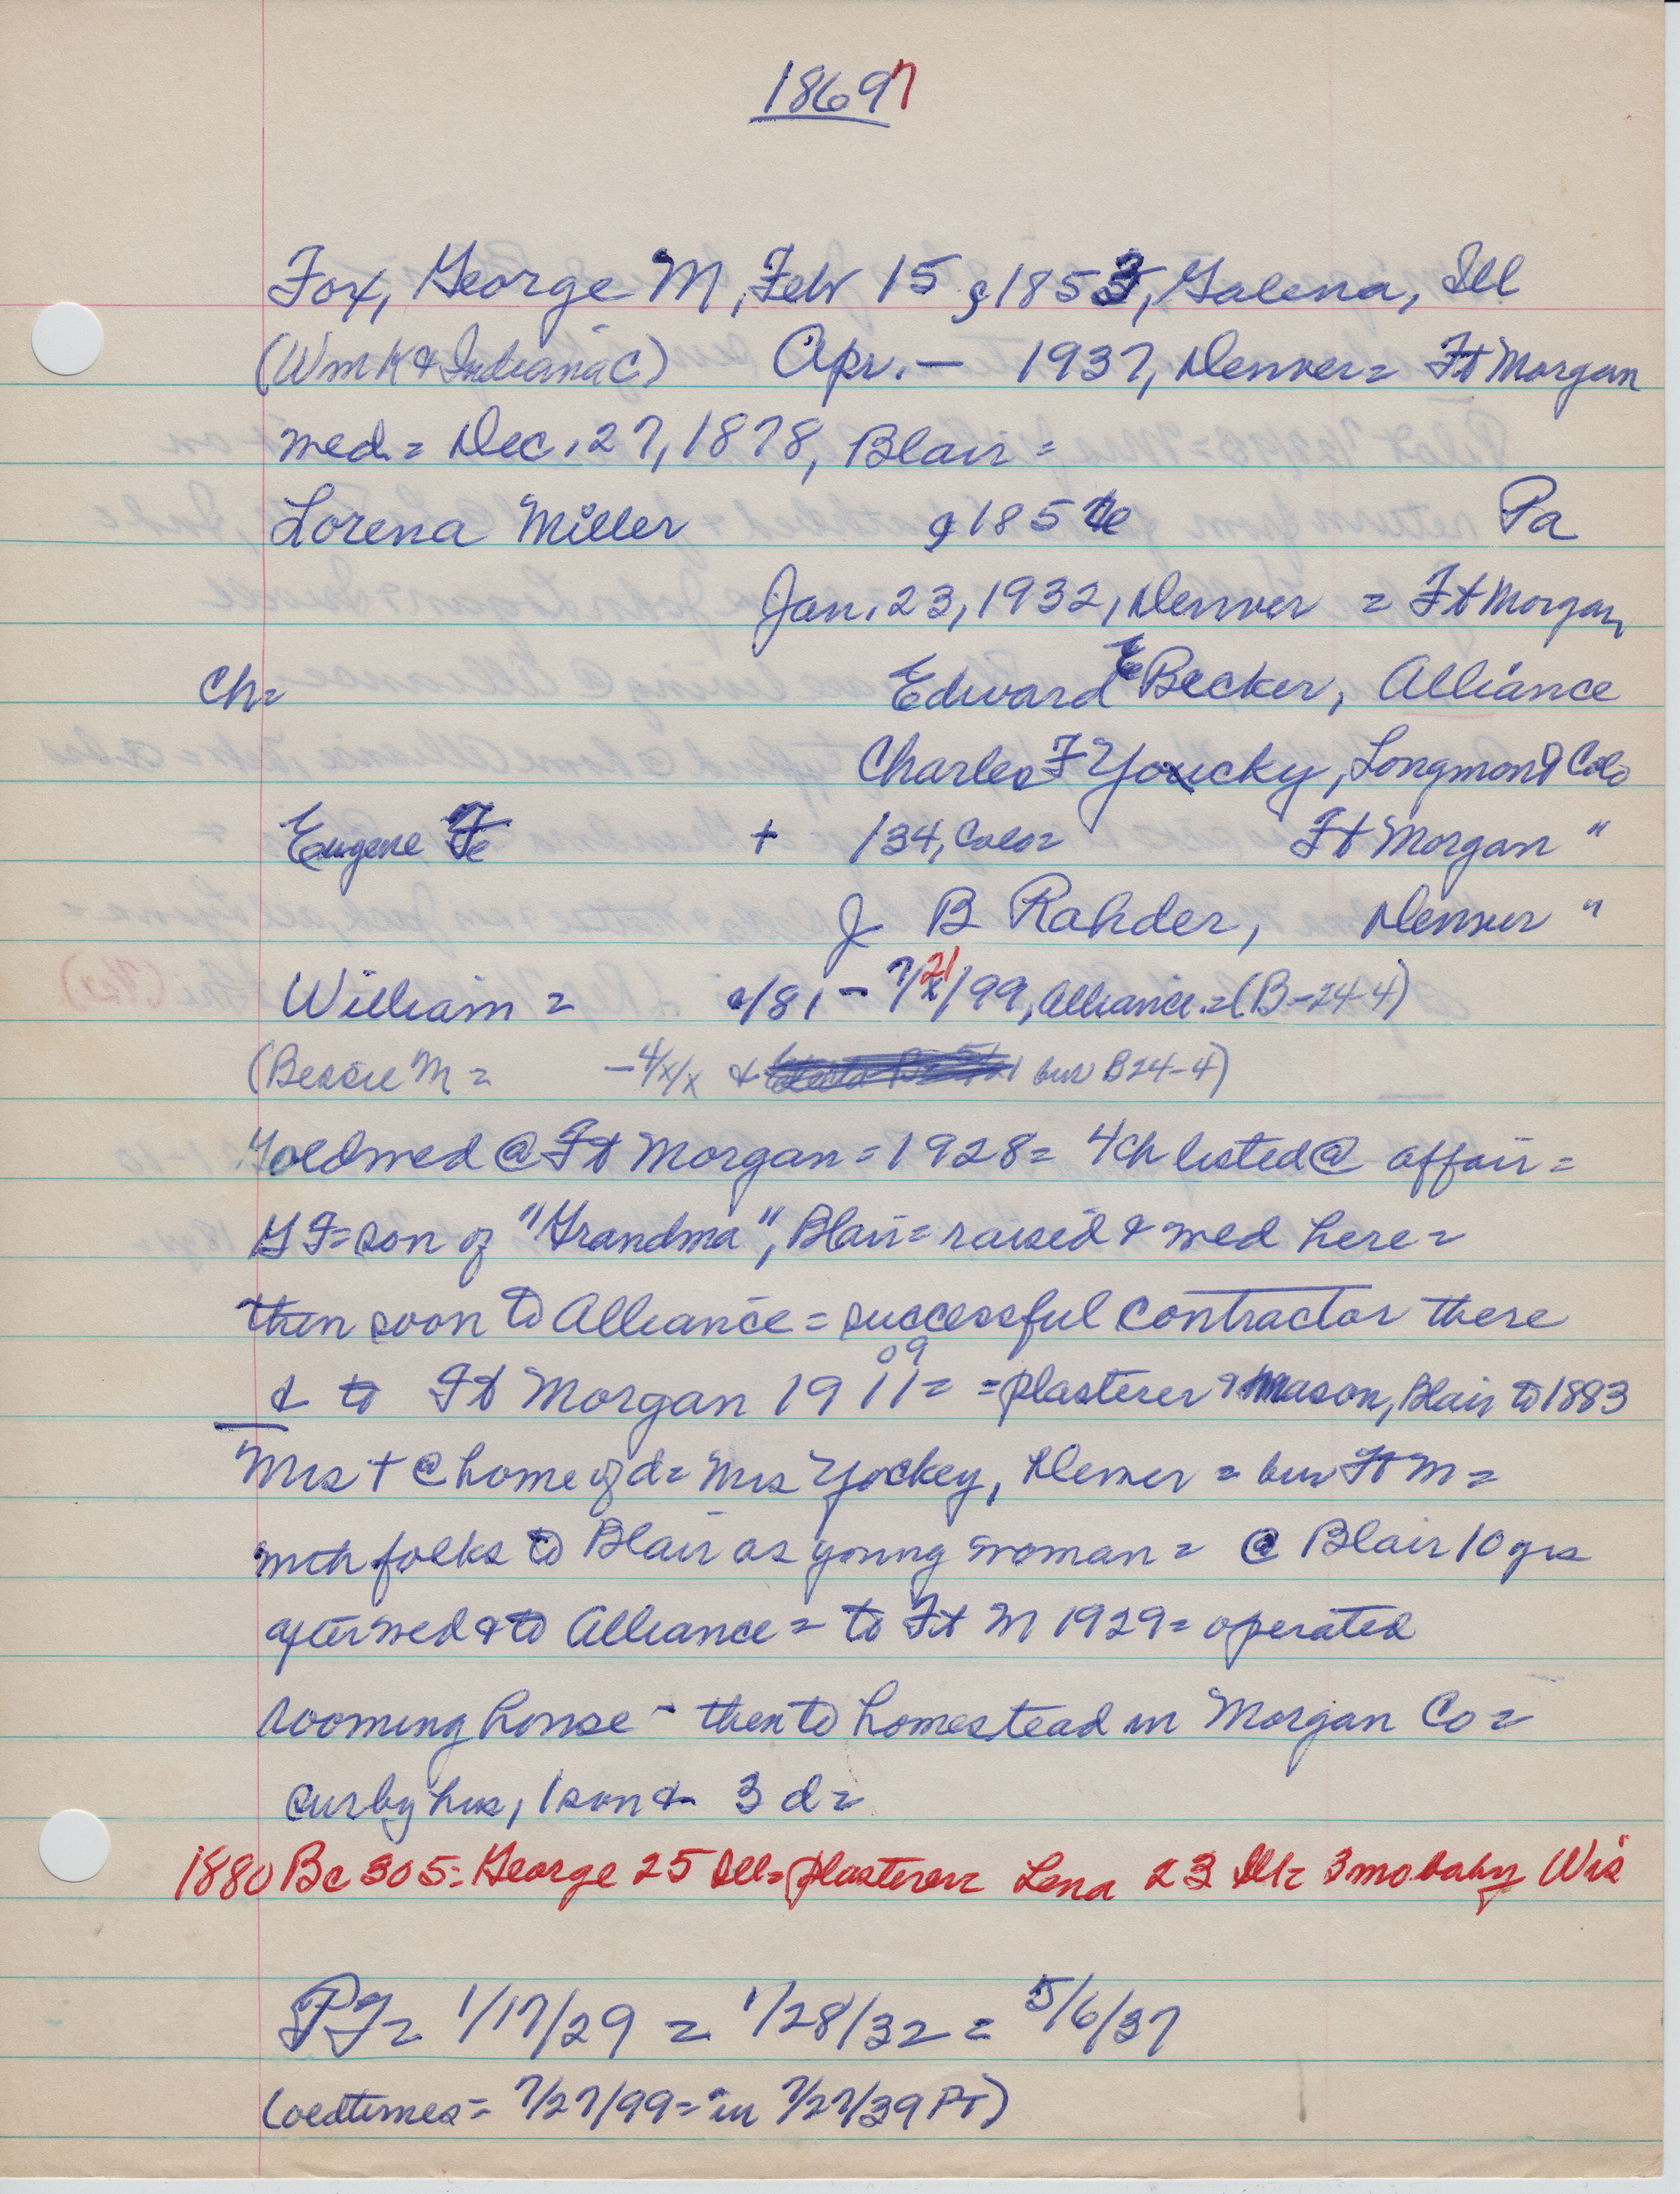 18697
Fox, George M, Feb 15, 1853, Galena, Ill
(Wm K & Indiana C) Apr. – 1937, Denver = Ft Morgan
med = Dec. 27, 1878, Blair =
Lorena Miller 185 Pa
Jan. 23, 1932, Denver = Ft Morgan
Ch= Edward E Becker, Alliance
Charles F Youcky, Longmont Colo
Eugene + 134, Colo = Ft Morgan "
J B Rahder, Denver "
William = /81 – 7/21/99, Alliance = (B-24-4)
(Bessie M = – 4/x/x & bur B24-4)
Goldwed @ Ft Morgan = 1928 = 4 ch listed @ affair =
G F = son of "Grandma", Blair = raised & med here =
then soon to Alliance = successful contractor there
& to Ft Morgan 1911 09 = = plasterer & mason, Blair to 1883
Mrs + @ home of d = Mrs Yockey, Denver = bur Ft M =
with folks to Blair as young woman = @ Blair 10 yrs
after med & to Alliance = to Ft M 1929 = operated
rooming house – then to homestead in Morgan Co =
sur by hus, 1 son & 3 d =
1880 Bc 305 = George 25 Ill = plasterer = Lena 23 Ill = 3 mo baby Wis
PT = 1/17/29 = 1/28/32 = 5/6/37
(oldtimes = 7/27/99 = in 7/27/39 PT)